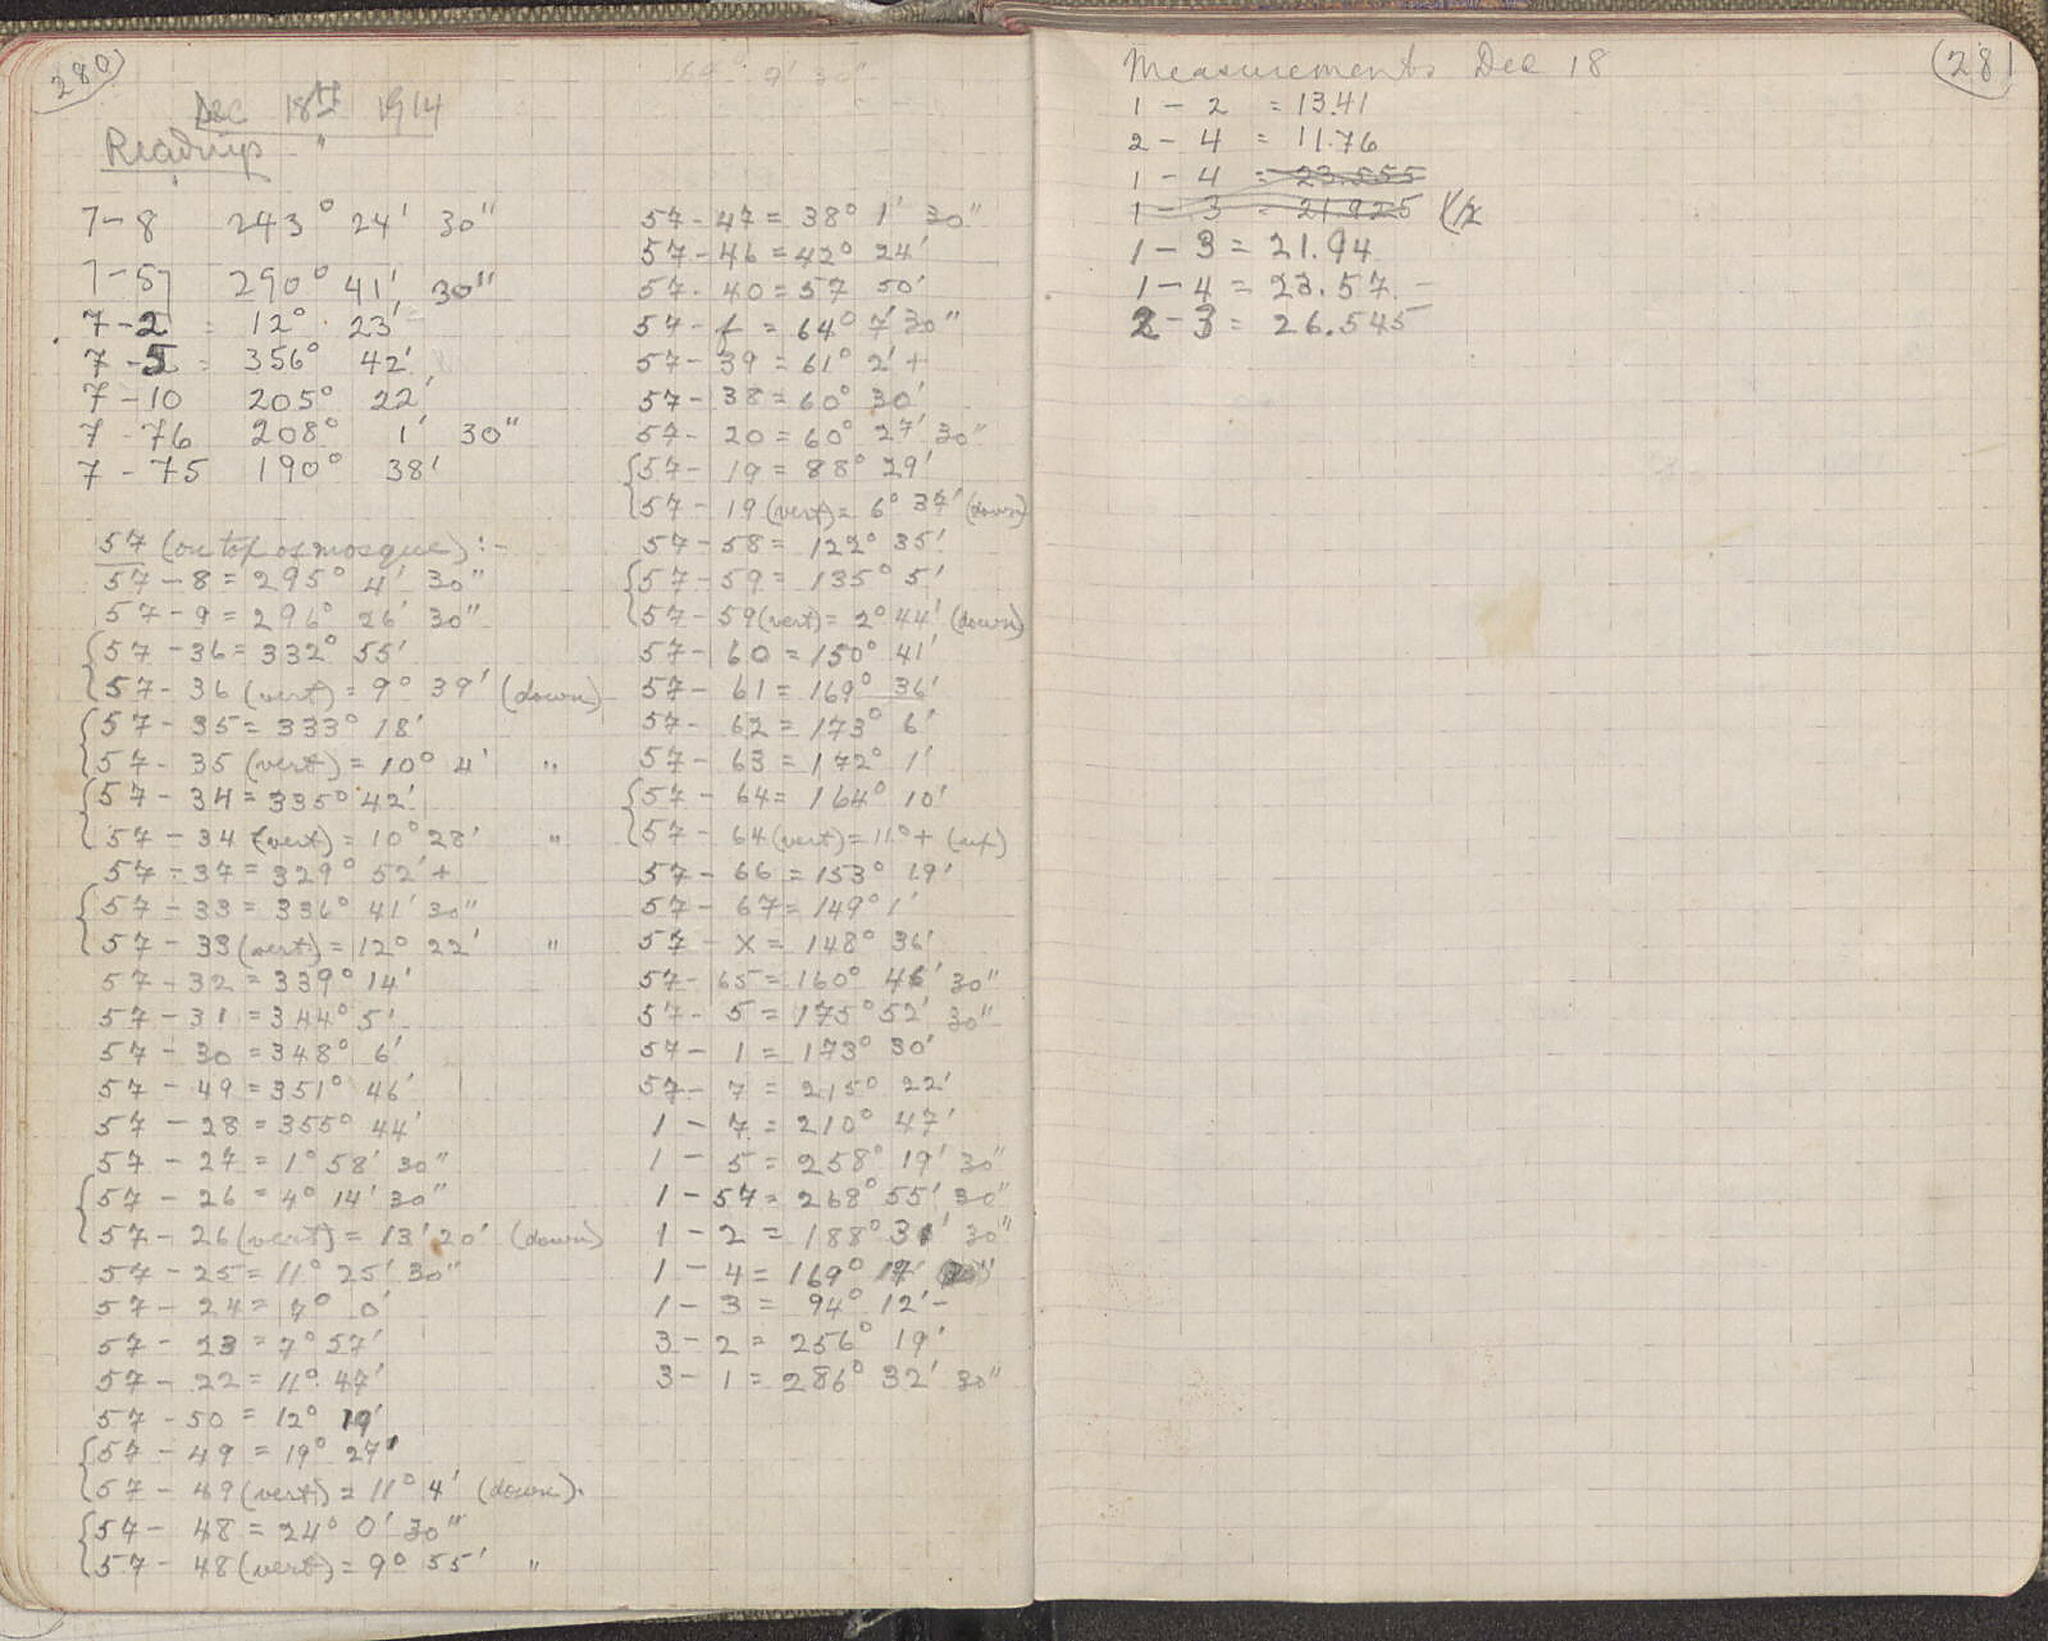 280
Dec 18th 1914
Readings
7-8 243° 24' 30"
7-57 290° 41' 30"
7-2 = 12° 23'
7-5 = 356° 42'
7-10 205° 22'
7-76 208° 1' 30"
7-75 190° 38'
57 (on top of mosque):-
57-8 = 295° 4' 30"
57-9 = 296° 26' 30"
57-36 = 332° 55'
57-36 (vert) = 9° 39' (down)
57-35 = 333° 18'
57-35 (vert) = 10° 4' "
57-34 = 335° 42'
57-34 (vert) = 10° 28' "
57-37 = 329° 52' +
57-33 = 336° 41' 30"
57-33 (vert) = 12° 22' "
57-32 = 339° 14'
57-31 = 344° 5'
57-30 = 348° 6'
57-49 = 351° 46'
57-28 = 355° 44'
57-27 = 1° 58' 30"
57-26 = 4° 14' 30"
57-26 (vert) = 13' 20' (down)
57-25 = 11° 25' 30"
57-24 = 7° 0'
57-23 = 7° 57'
57-22 = 11° 47'
57-50 = 12° 19'
57-49 = 19° 27'
57-49 (vert) = 11° 4' (down).
57-48 = 24° 0' 30"
57-48 (vert) = 9° 55' "
64° 7' 30"
57-47 = 38° 1' 30"
57-46 = 42° 24'
57-40 = 57 50'
57-f = 64° 7' 30"
57-39 = 61° 2' +
57-38 = 60° 30'
57-20 = 60° 27' 30"
57-19 = 88° 29'
57-19 (vert) = 6° 37' (down)
57-58 = 122° 35'
57-59 = 135° 5'
57-59 (vert) = 2° 44' (down)
57-60 = 150° 41'
57-61 = 169° 36'
57-62 = 173° 6'
57-63 = 172° 1'
57-64 = 164° 10'
57-64 (vert) = 11° + (up)
57-66 = 153° 19'
57-67 = 149° 1'
57-X = 148° 36'
57-65 = 160° 46' 30"
57-5 = 175° 52' 30"
57-1 = 173° 30'
57-7 = 215° 22'
1-7 = 210° 47'
1-5 = 258° 19' 30"
1-57 = 268° 55' 30"
1-2 = 188° 31' 30"
1-4 = 169° 17'
1-3 = 94° 12' -
3-2 = 256° 19'
3-1 = 286° 32' 30"
281
Measurements Dec 18
1-2 = 13.41
2-4 = 11.76
1-4 = 23.555
1-3 = 21.925
1-3 = 21.94
1-4 = 23.57 -
2-3 = 26.545